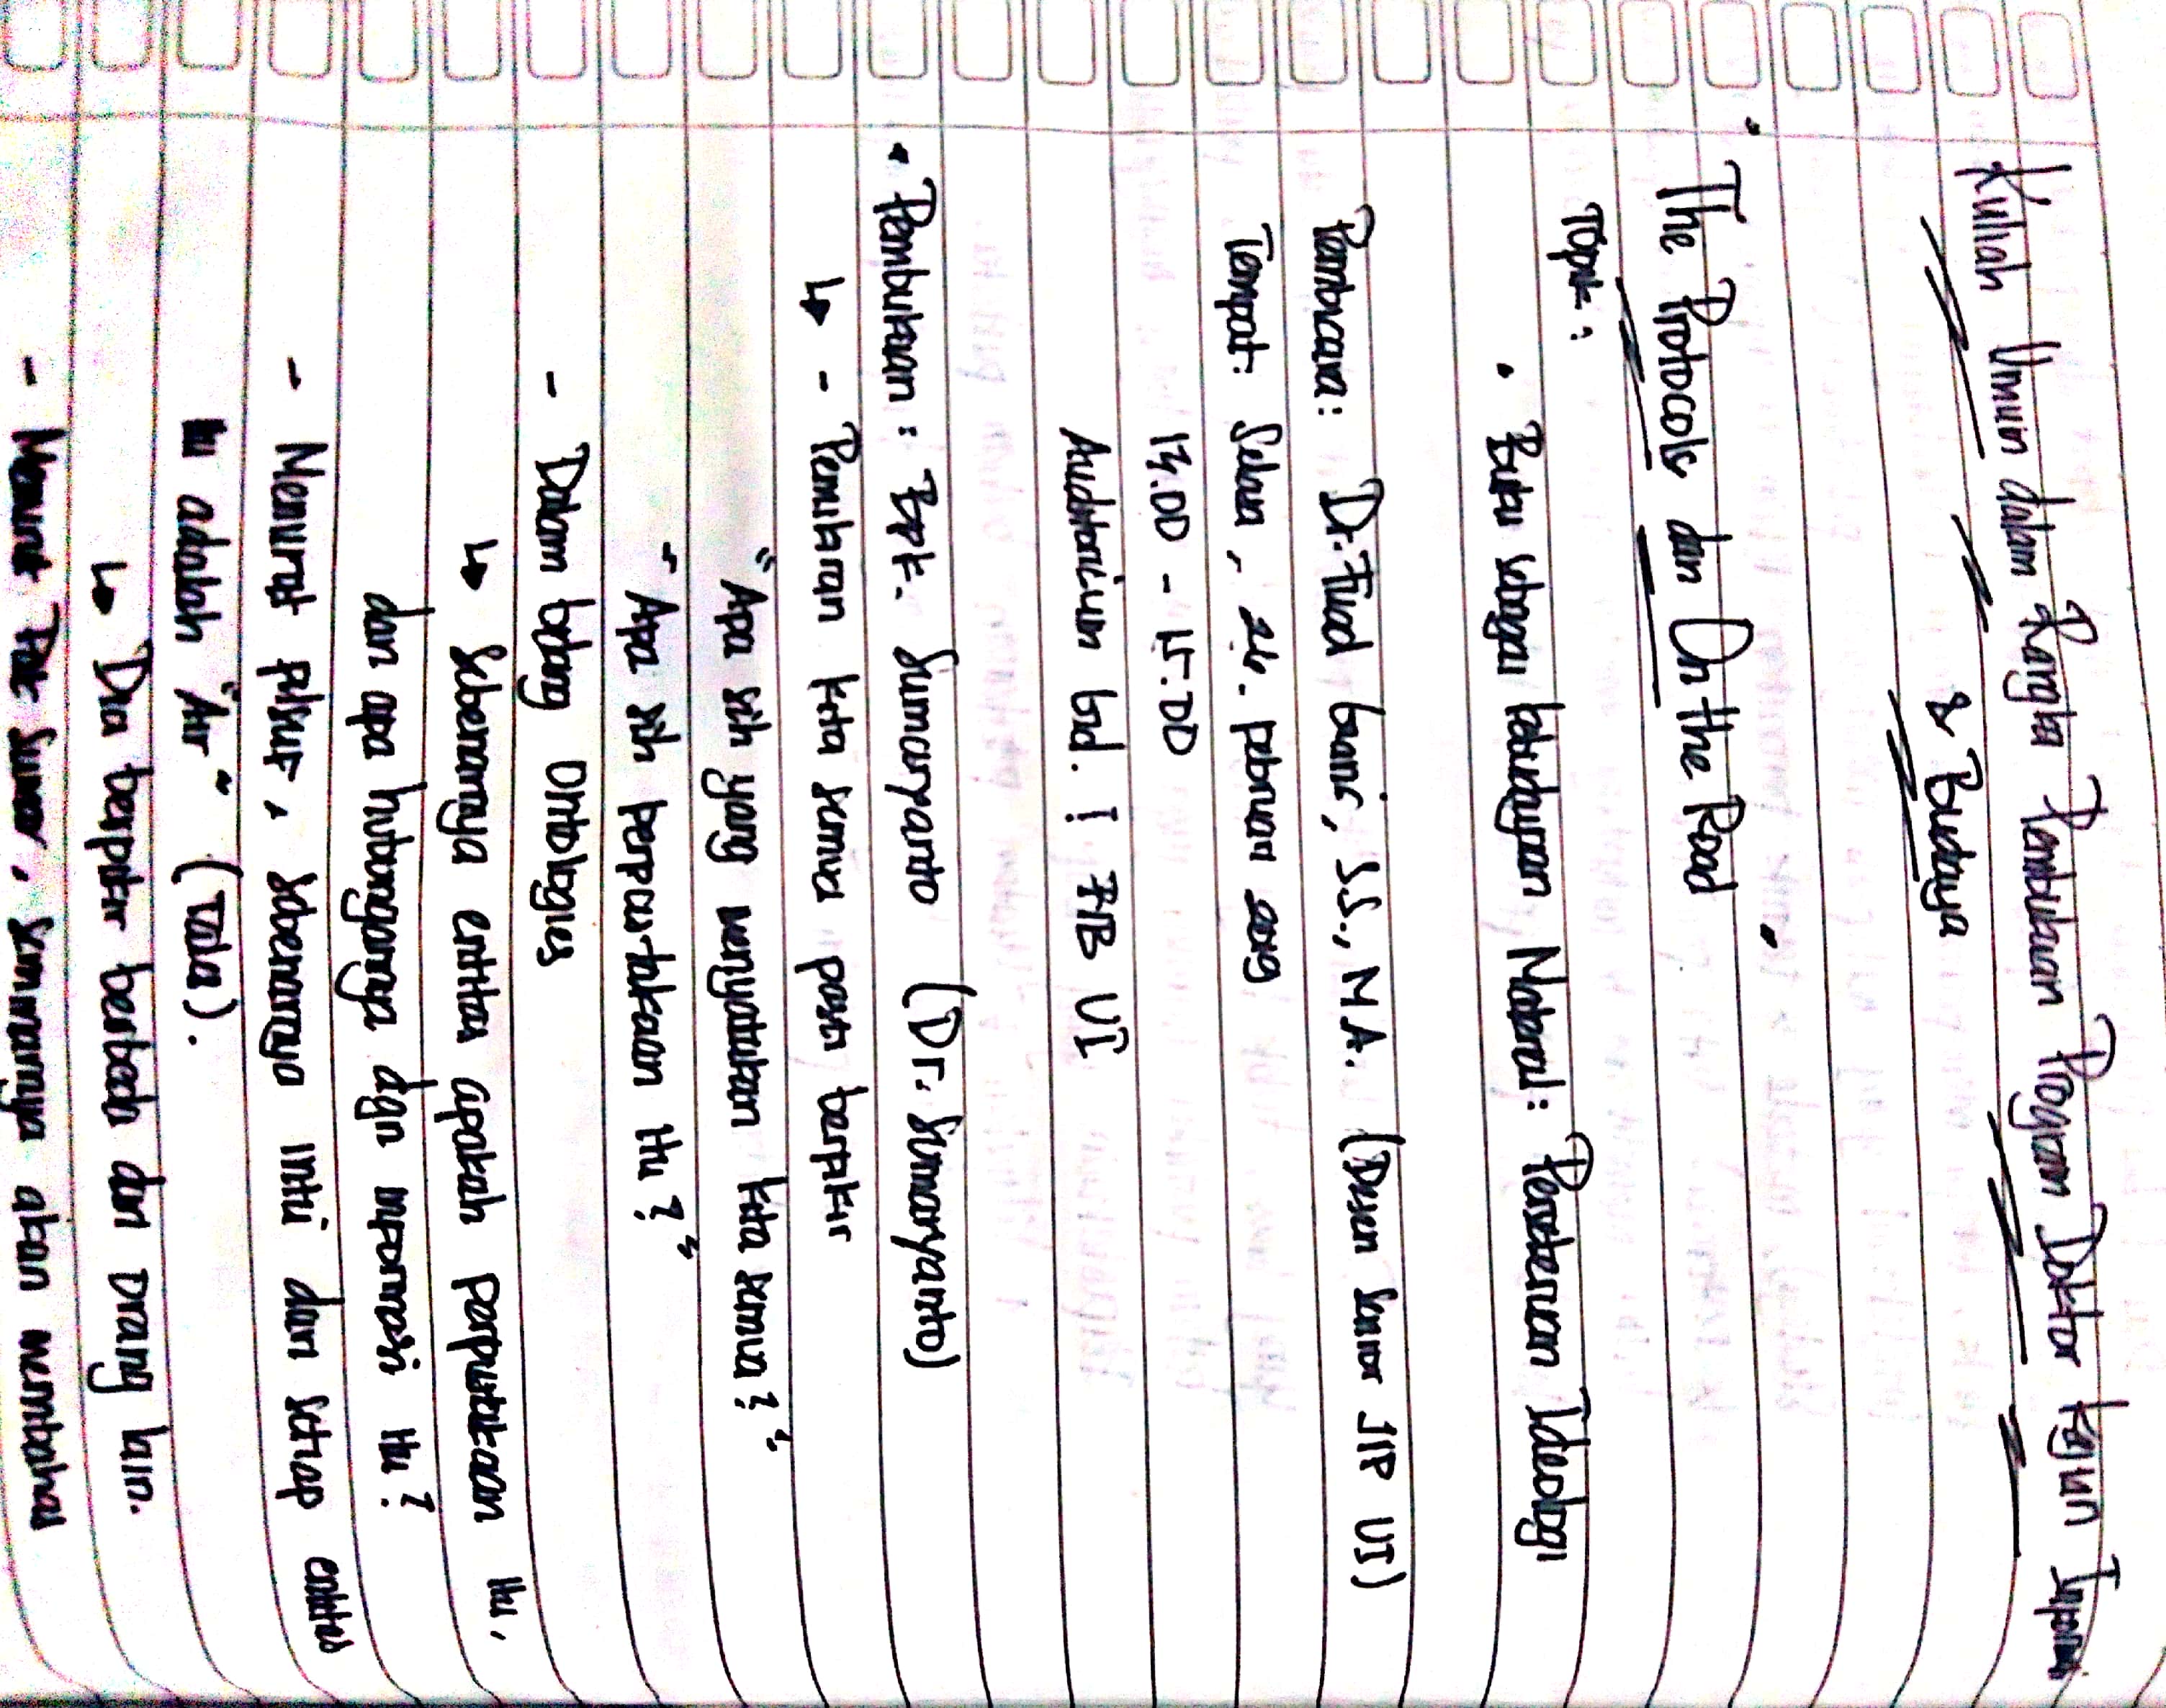 Kuliah Umum dalam Rangka Pembukaan Program Doktor Kajian Informasi
& Budaya
• The Protocols dan On the Road
Topik :
• Buku sebagai kebudayaan Material: Perseteruan Ideologi
Pembicara: Dr. Fuad Gani, S.S., M.A. (Dosen Senior JIP UI)
Tempat: Selasa, 24 Februari
13.00 - 15.00
Auditorium Gd. I FIB UI
• Pembukaan : Bpk. Sumaryanto (Dr. Sumaryanto)
↳ - Pemikiran kita semua pasti berpikir
"Apa sih yang menyatukan kita semua?"
"Apa sih perpustakaan itu?"
- Dalam bidang Ontologies
↳ Sebenarnya entitas apakah perpustakaan itu,
dan apa hubungannya dgn informasi itu?
- Menurut filsuf, sebenarnya inti dari setiap entitas
itu adalah "Air" (Tales).
↳ Dia berpikir berbeda dari orang lain.
- Menurut Pak Sumar, semuanya akan membahas